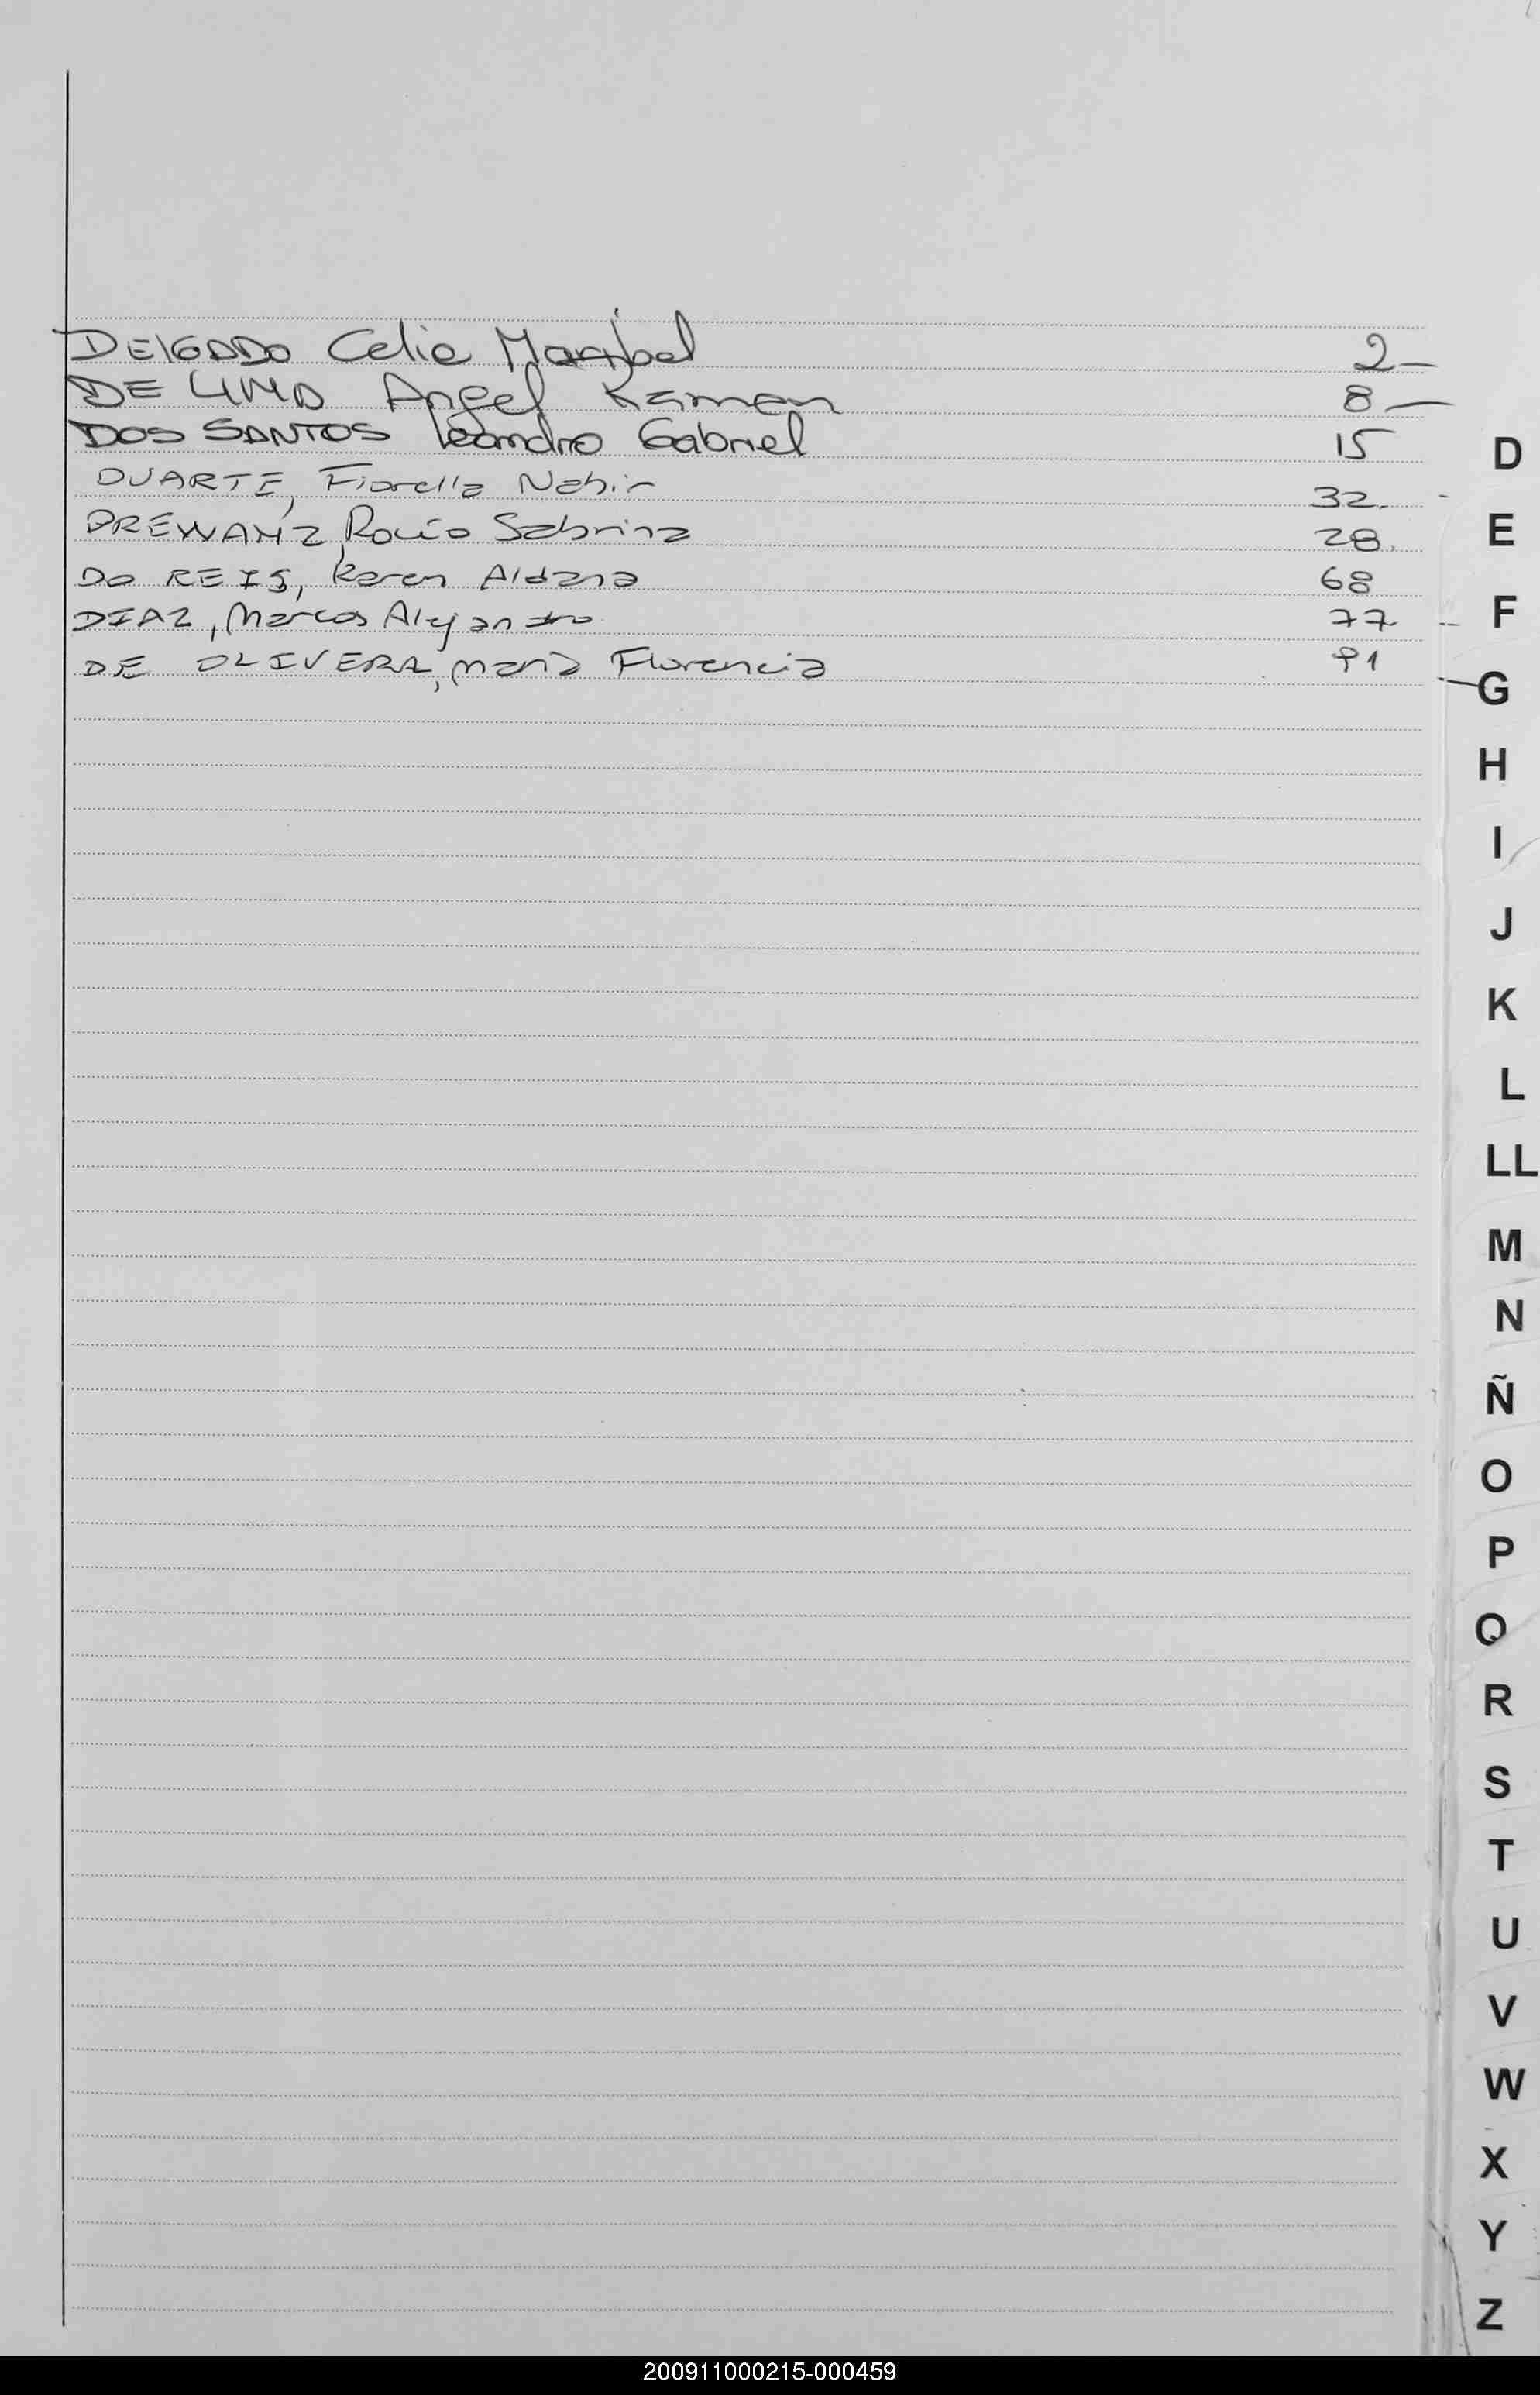 DELGADO Celia Maribel 2-
DE LIMA Angel Ramon 8-
DOS SANTOS Leandro Gabriel 15
DUARTE, Fiorella Nahir 32.
DREWANZ, Rocío Sabrina 28.
DO REIS, Karen Aldana 68
DIAZ, Marcos Alejandro 77
DE OLIVERA, María Florencia 91
D
E
F
G
H
I
J
K
L
LL
M
N
Ñ
O
P
Q
R
S
T
U
V
W
X
Y
Z
200911000215-000459